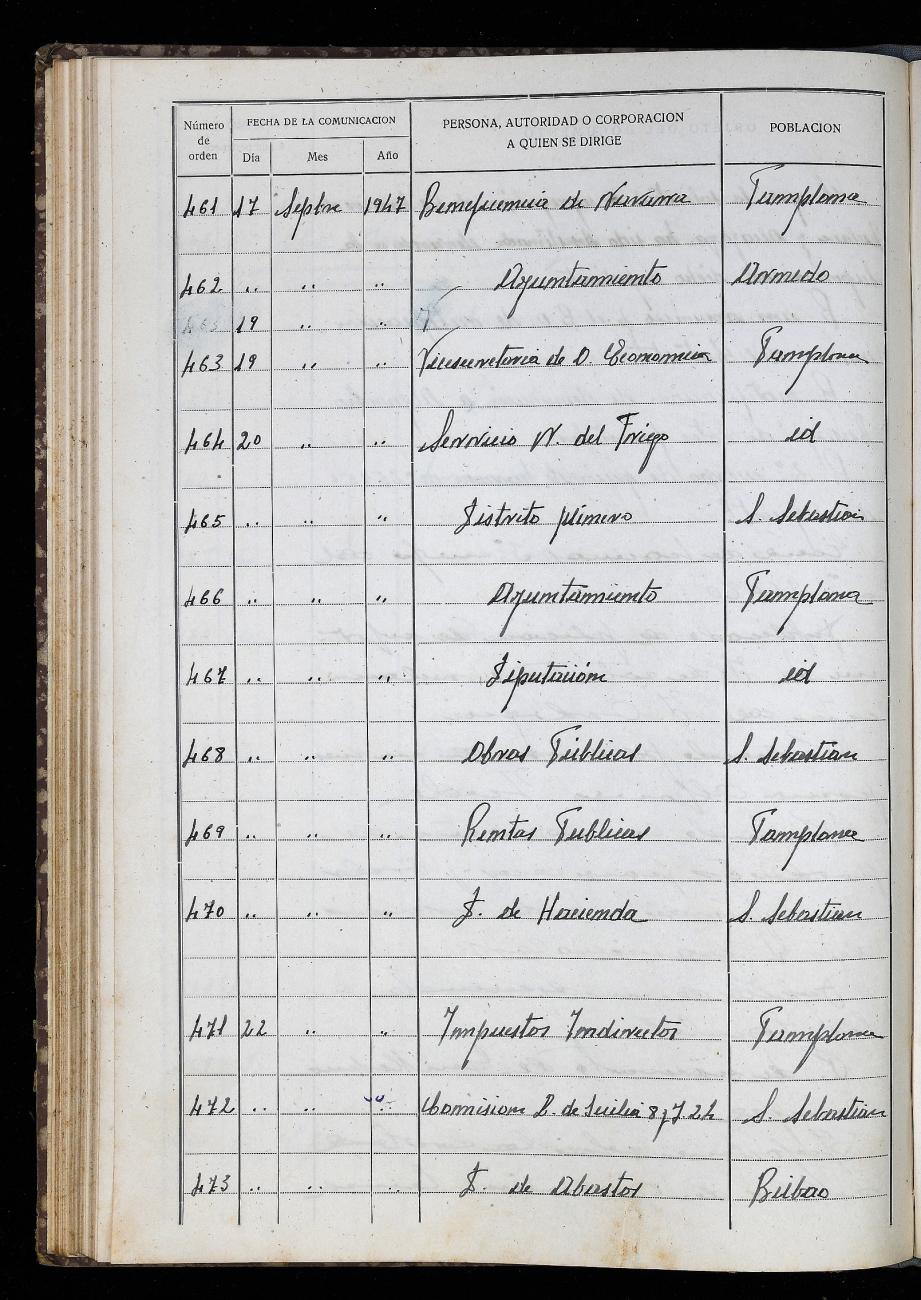 Número de orden | FECHA DE LA COMUNICACION | PERSONA, AUTORIDAD O CORPORACION A QUIEN SE DIRIGE | POBLACION
Día | Mes | Año
461 17 Septbre 1947 Beneficencia de Navarra Pamplona
462 .. .. .. Ayuntamiento Arnedo
463 19 .. ..
463 19 .. .. Vicesecretaria de O. Economica Pamplona
464 20 .. .. Servicio N. del Trigo id
465 .. .. .. Distrito primero S. Sebastian
466 .. .. .. Ayuntamiento Pamplona
467 .. .. .. Diputación id
468 .. .. .. Obras Públicas S. Sebastian
469 .. .. .. Rentas Publicas Pamplona
470 .. .. .. D. de Hacienda S. Sebastian
471 22 .. .. Impuestos Indirectos Pamplona
472 .. .. .. Comision B. de Sicilia 8 y 7.24 S. Sebastian
473 .. .. .. D. de Abastos Bilbao